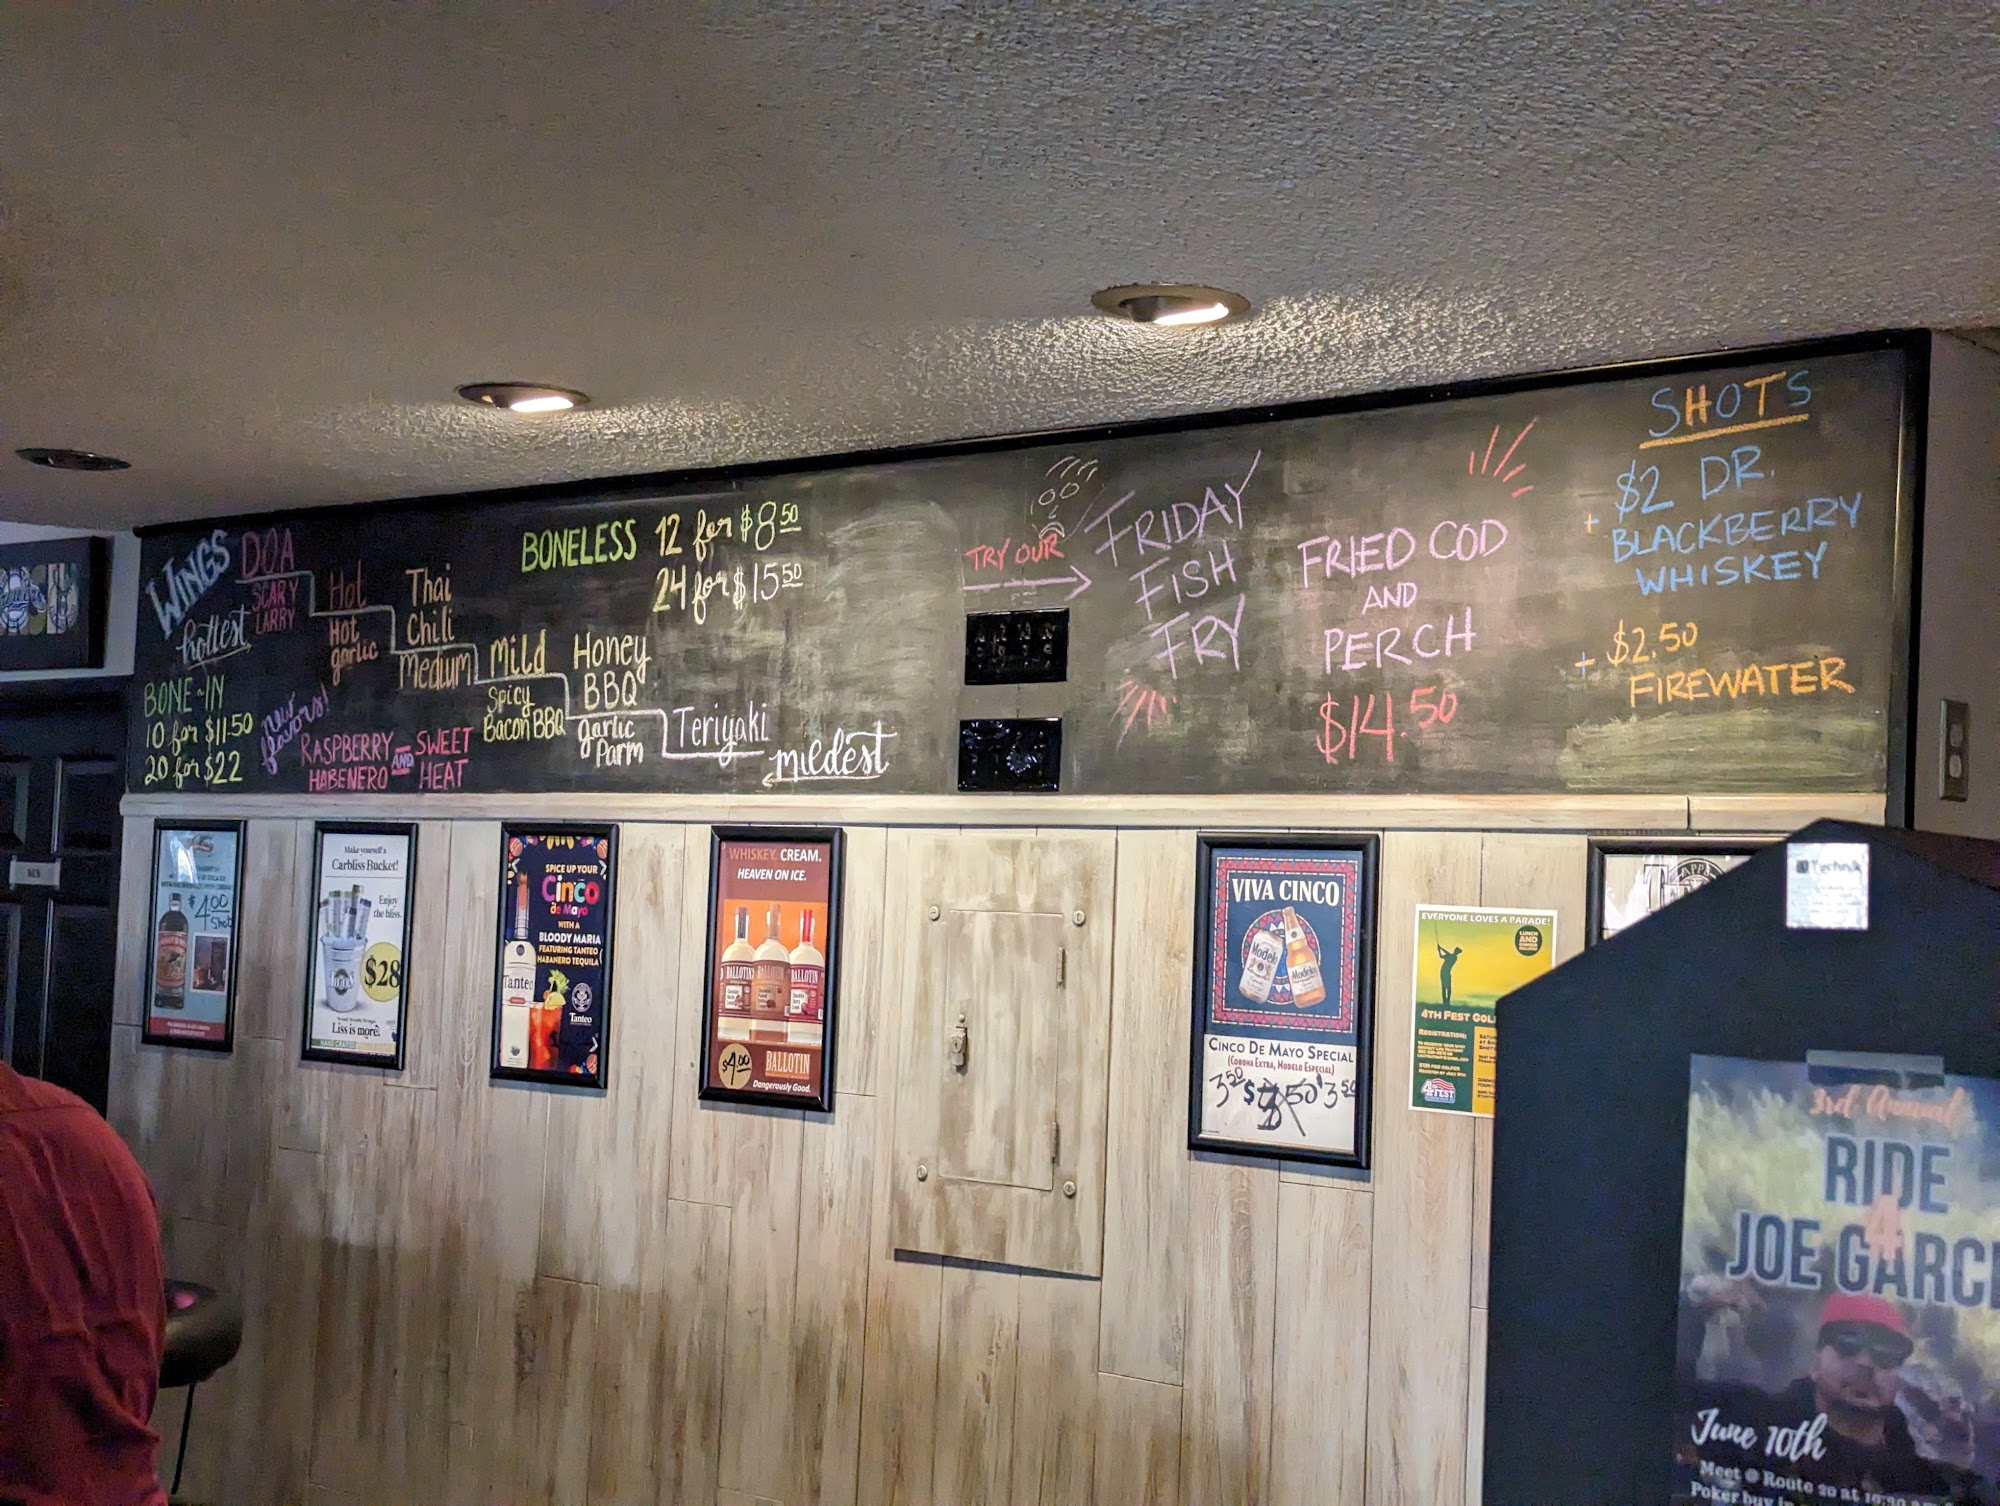 WINGS
hottest
DOA
SCARY
LARRY
Hot
Hot
garlic
Thai
Chili
Medium
Mild
Spicy
Bacon BBQ
Honey
BBQ
garlic
Parm
Teriyaki
mildest
BONE-IN
10 for $11.50
20 for $22
new
flavors!
RASPBERRY
HABENERO
AND
SWEET
HEAT
BONELESS 12 for $8.50
24 for $15.50
TRY OUR
FRIDAY
FISH
FRY
FRIED COD
AND
PERCH
$14.50
SHOTS
+ $2 DR.
BLACKBERRY
WHISKEY
+ $2.50
FIREWATER
MEN
$4.00
Shot
Make yourself a
Carbliss Bucket!
Enjoy
the bliss.
$28
Liss is more.
SPICE UP YOUR
Cinco
de Mayo
WITH A
BLOODY MARIA
FEATURING TANTEO
HABANERO TEQUILA
Tanteo
Tanteo
WHISKEY. CREAM.
HEAVEN ON ICE.
BALLOTIN
BALLOTIN
BALLOTIN
$4.00
BALLOTIN
Dangerously Good.
VIVA CINCO
Modelo
Modelo
CINCO DE MAYO SPECIAL
(CORONA EXTRA, MODELO ESPECIAL)
3.50 $3.50 $3.50
EVERYONE LOVES A PARADE!
LUNCH
AND
DINNER
4TH FEST GOL
REGISTRATION:
4FEST
Technik
3rd Annual
RIDE
4
JOE GARCI
June 10th
Meet @ Route 20 at 10:30
Poker buy in